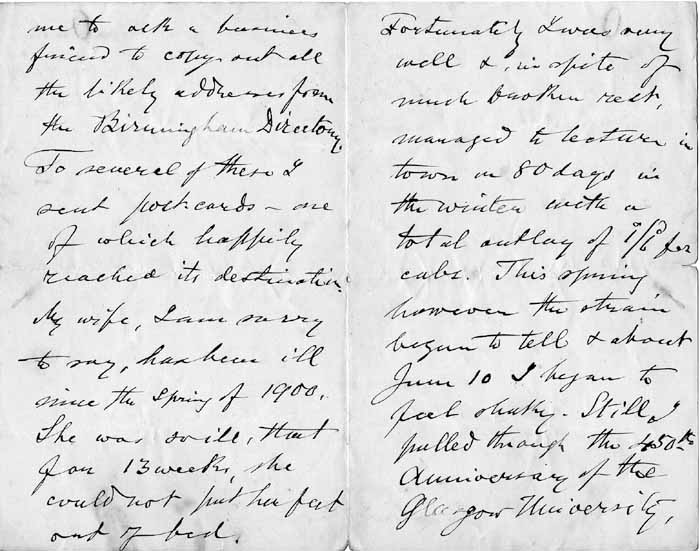 me to ask a business
friend to copy out all
the likely addresses from
the Birmingham Directory.
To several of these I
sent postcards – one
of which happily
reached its destination.
My wife, I am sorry
to say, has been ill
since the Spring of 1900.
She was so ill, that
for 13 weeks, she
could not put her feet
out of bed.
Fortunately I was very
well &, in spite of
much broken rest,
managed to lecture in
town on 80 days in
the winter with a
total outlay of for
cabs. This spring
however the strain
began to tell & about
June 10 I began to
feel shaky. Still I
pulled through the 450th
Anniversary of the
Glasgow University,